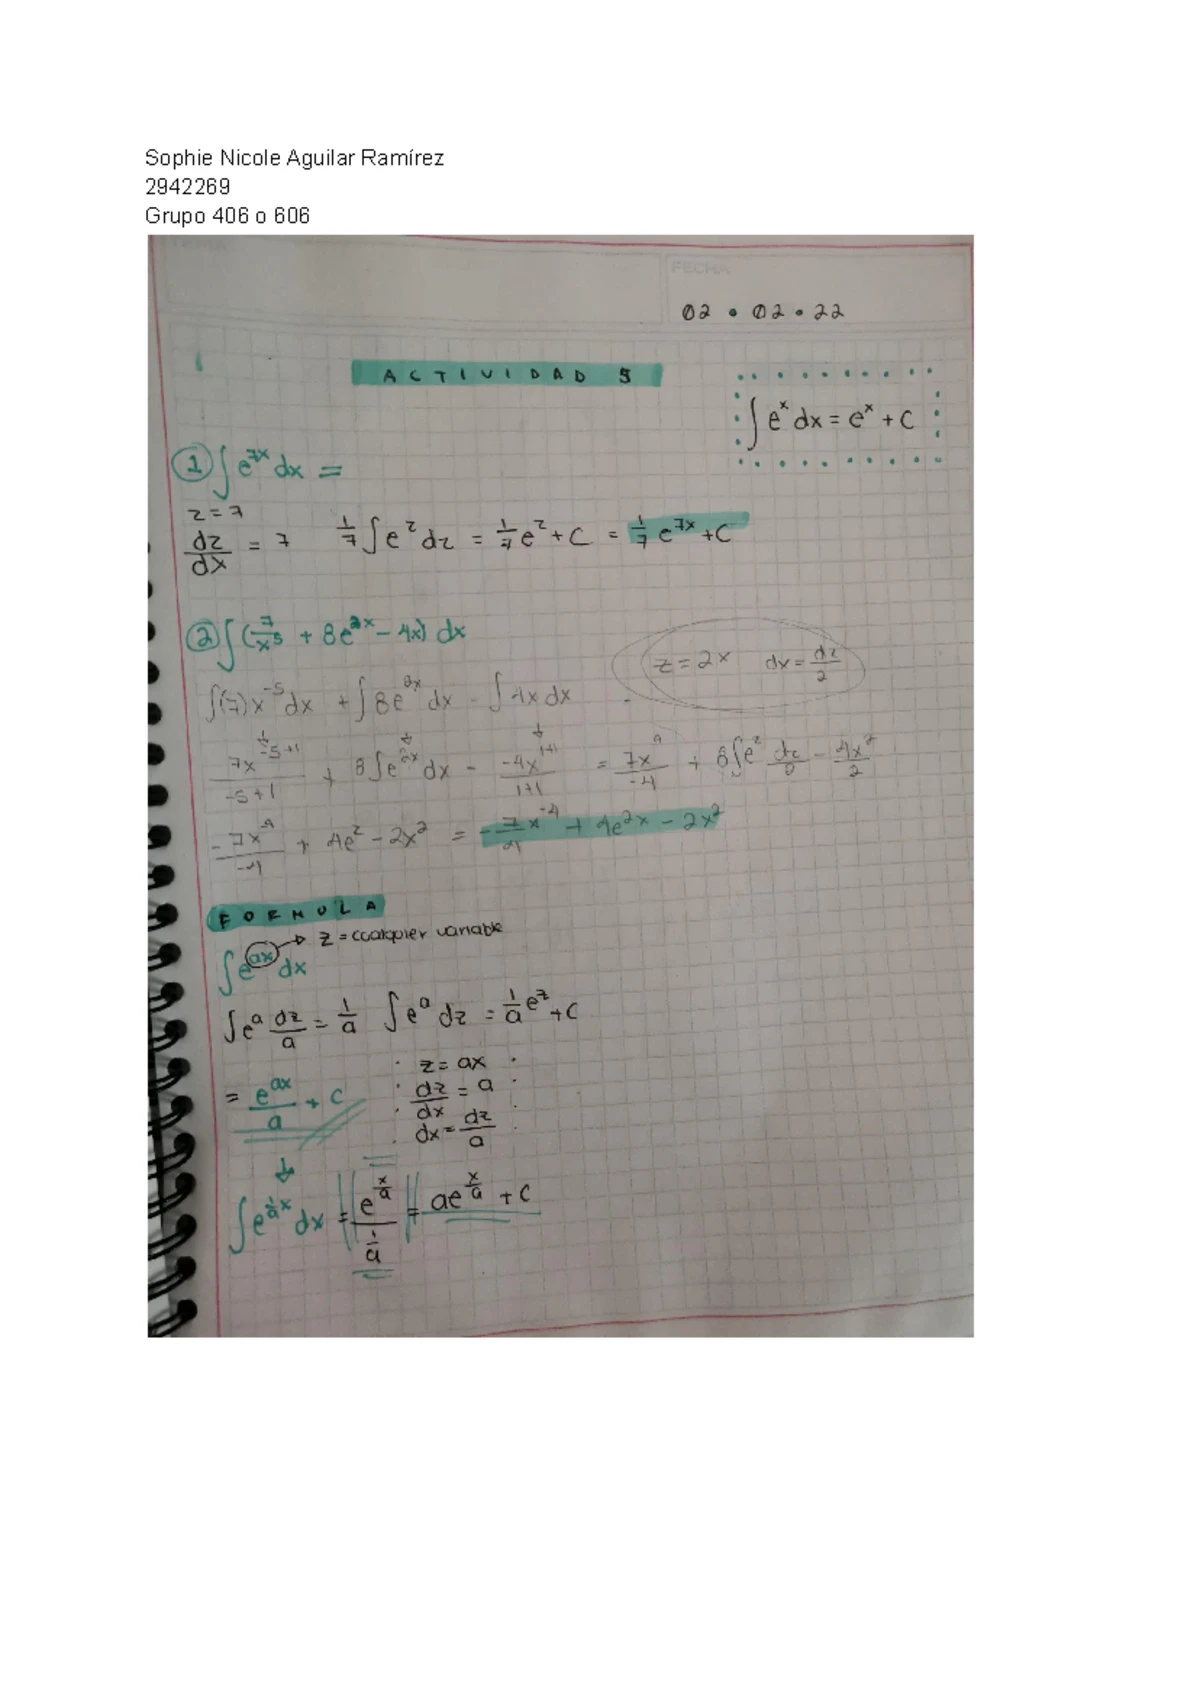 Sophie Nicole Aguilar Ramírez
2942269
Grupo 406 o 606
FECHA
02 • 02 • 22
ACTIVIDAD 5
∫e^x dx = e^x + C
① ∫e^7x dx =
z = 7
dz/dx = 7   1/7 ∫e^z dz = 1/7 e^z + C = 1/7 e^7x + C
② ∫(7/x^5 + 8e^2x - 4x) dx
z = 2x   dx = dz/2
∫(7)x^-5 dx + ∫8e^2x dx - ∫4x dx
7x^-5+1/-5+1 + 8∫e^2x dx - -4x^1+1/1+1 = 7x/-4 + 8∫e^z dz/2 - 4x^2/2
-7x/-4 + 4e^z - 2x^2 = -7/4 x^-4 + 4e^2x - 2x^2
FORMULA
z = cualquier variable
∫e^ax dx
∫e^a dz/a = 1/a ∫e^a dz = 1/a e^z + C
z = ax
= e^ax/a + C
dz/dx = a
dx = dz/a
∫e^1/a x dx = e^x/a / 1/a = ae^x/a + C